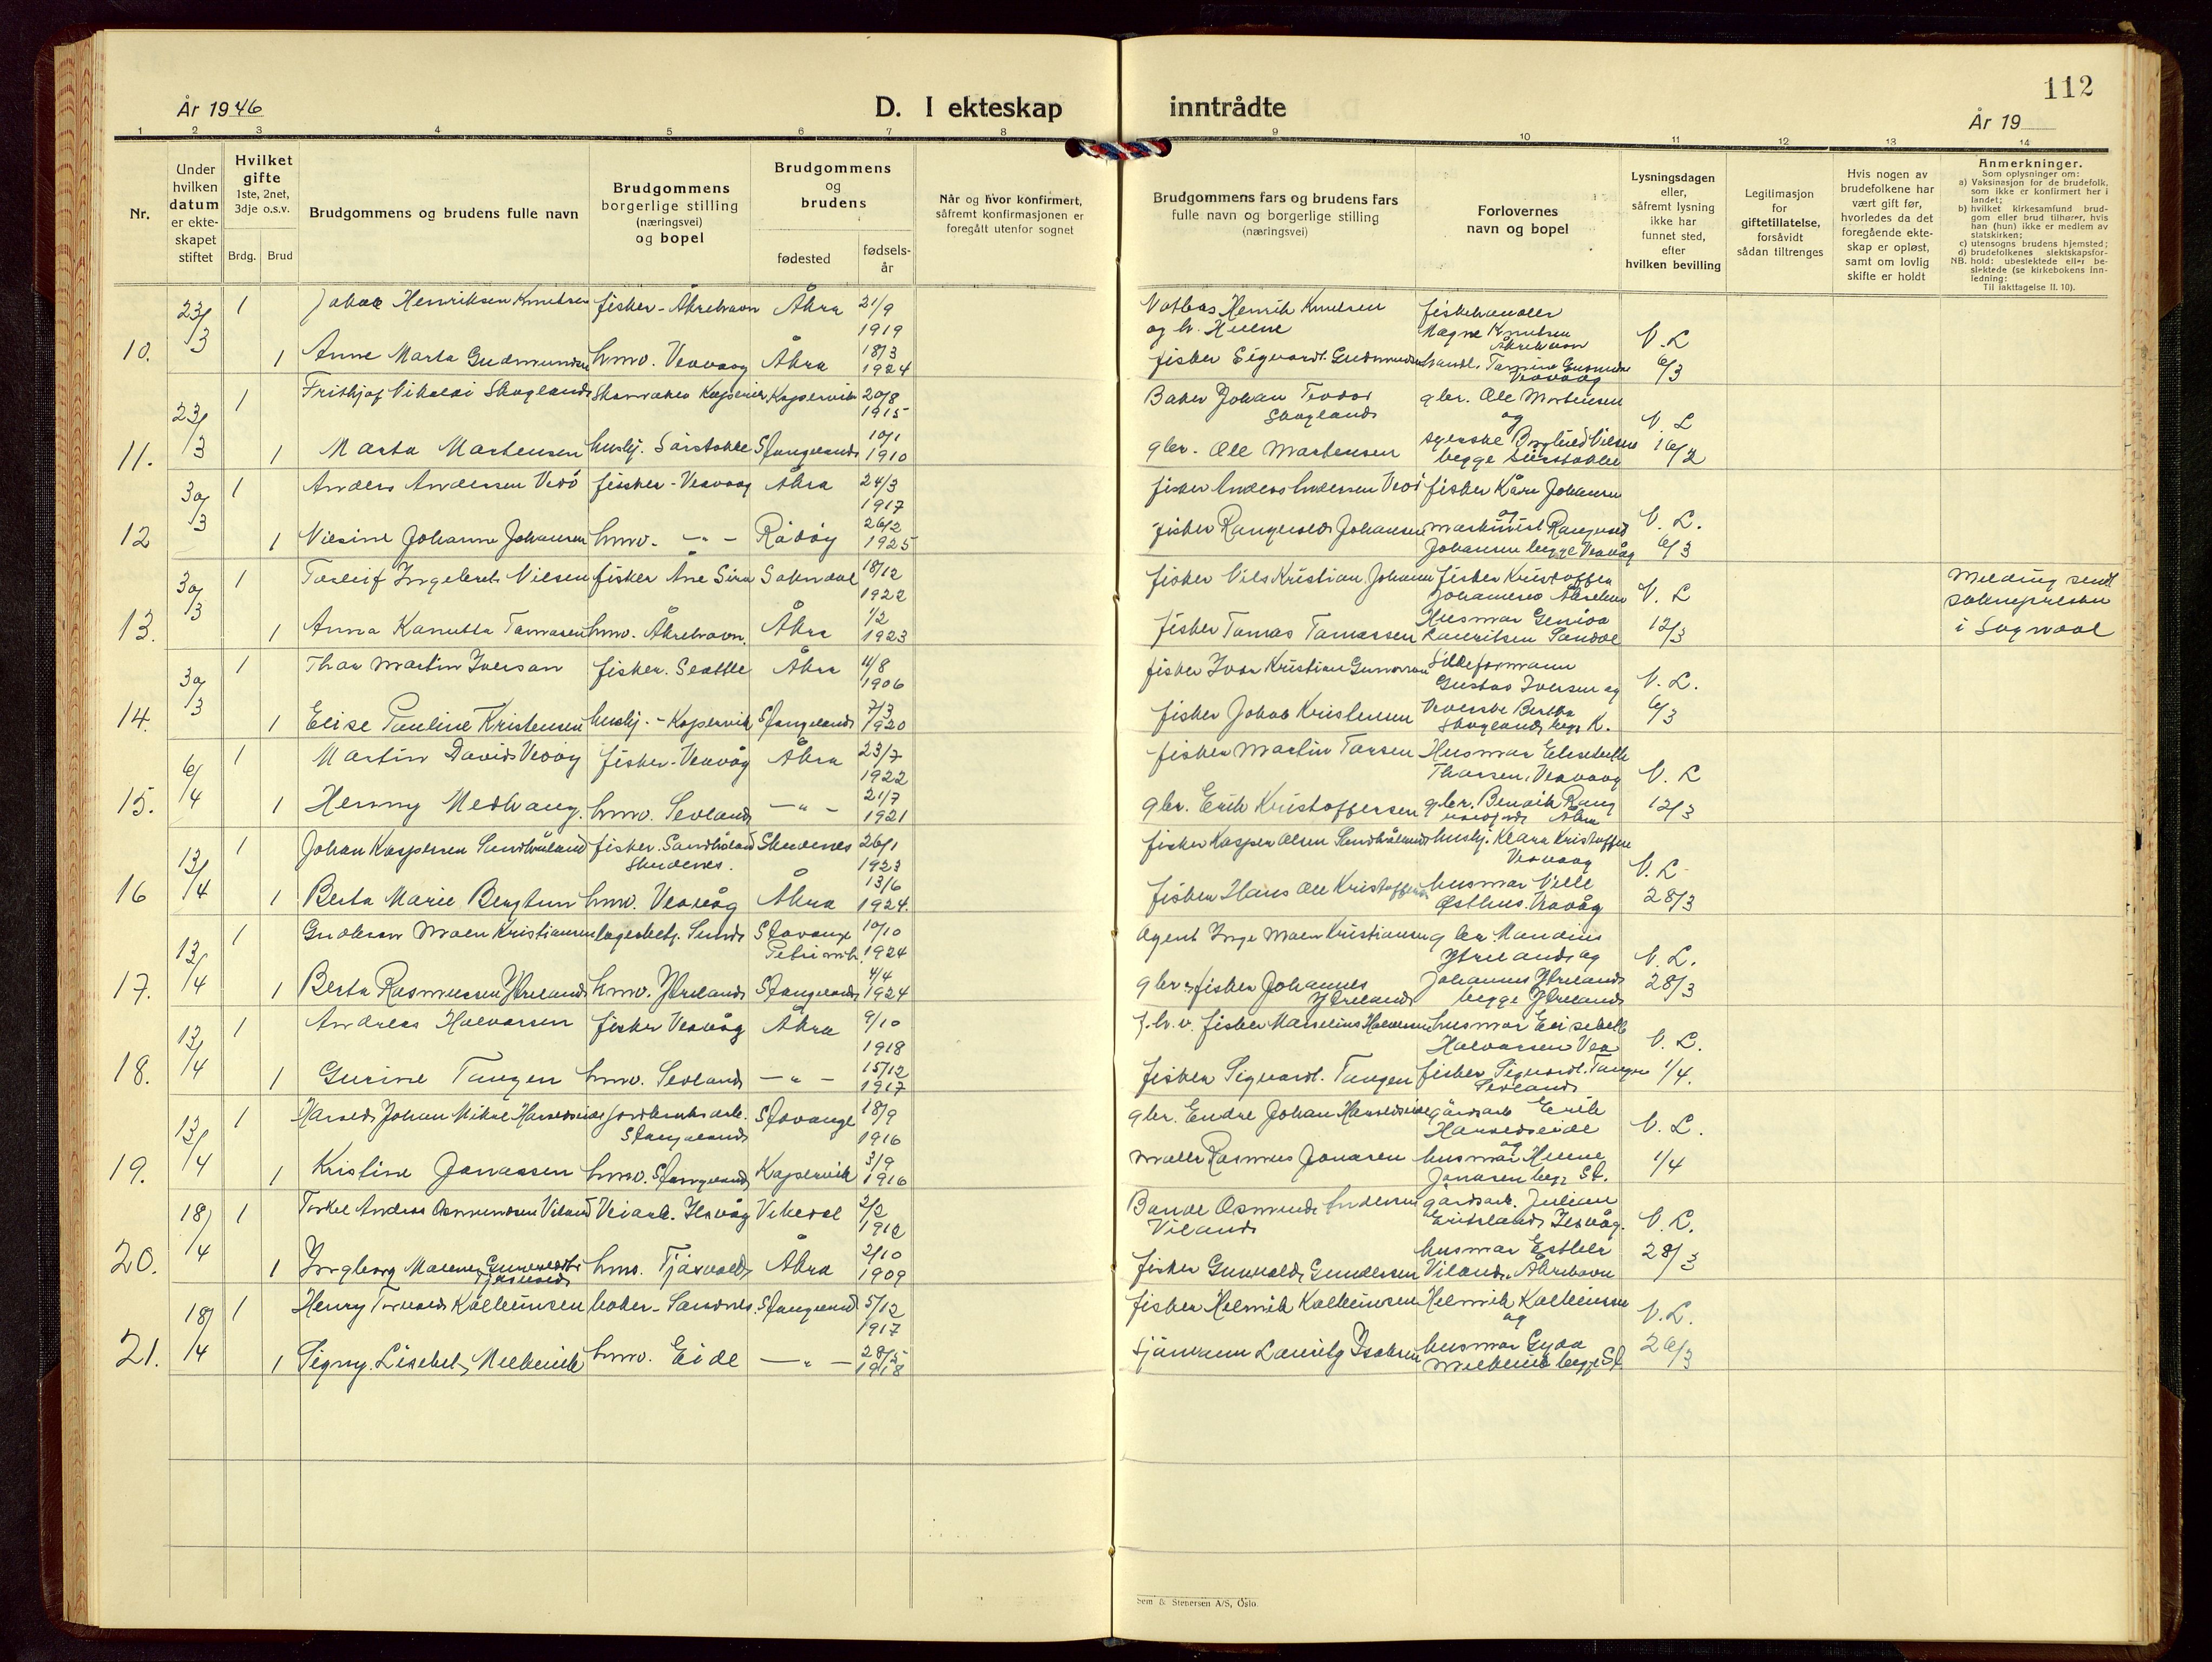 År 1946
D. I ekteskap
inntrådte
112
År 19
1 2 3 4 5 6 7 8 9 10 11 12 13 14
Nr.
Under hvilken datum er ekte-skapet stiftet
Hvilket gifte
1ste, 2net, 3dje o.s.v.
Brdg. Brud
Brudgommens og brudens fulle navn
Brudgommens borgerlige stilling (næringsvei) og bopel
Brudgommens og brudens
fødested
fødsels-år
Når og hvor konfirmert, såfremt konfirmasjonen er foregått utenfor sognet
Brudgommens fars og brudens fars fulle navn og borgerlige stilling (næringsvei)
Forlovernes navn og bopel
Lysningsdagen eller, såfremt lysning ikke har funnet sted, efter hvilken bevilling
Legitimasjon for giftetillatelse, forsåvidt sådan tiltrenges
Hvis nogen av brudefolkene har vært gift før, hvorledes da det foregående ekte-skap er opløst, samt om lovlig skifte er holdt
Anmerkninger.
Som oplysninger om:
a) Vaksinasjon for de brudefolk, som ikke er konfirmert her i landet;
b) hvilket kirkesamfund brud-gom eller brud tilhører, hvis han (hun) ikke er medlem av statskirken;
c) utensogns brudens hjemsted;
d) brudefolkenes slektskapsfor-hold: ubeslektede eller be-slektede (se kirkebokens inn-ledning:
NB.
Til iakttagelse II. 10).
10. 23/3 1 Henriksen Knutsen fisker - Åkrehavn Åkra 21/9 1919
Henrik Knutsen og h. Helene
fiskehandler Magne Knutsen Åkrehavn V. L
1 Anne Marta Gudmundsen hmv. Veavåg Åkra 18/3 1924
fisker Sigvardt. Gudmundsen 6/3
11. 23/3 1 Frithjof Nikolai Skogland Kopervik Kopervik 20/8 1915
Baker Johan Teodor Skogland
gbr. Ole Mortensen og V. L
1 Marta Martensen hushj. Sørstokke Stangeland 10/1 1910
gbr. Ole Martensen
syerske Borghild Nilsen begge Sørstokke 16/2
12 30/3 1 Anders Andersen Vedø fisker - Veavåg Åkra 24/3 1917
fisker Anders Andersen Vedø
fisker Kåre Johansen og V. L.
1 Nilsine Johanne Johansen hmv. - " - Rådøy 26/2 1925
fisker Rangvald Johansen
maskinist Rangvald Johansen begge Veavåg 6/3
13. 30/3 1 Torleif Ingebret Nilsen fisker Åne Sira Sokndal 18/12 1922
fisker Nils Kristian Johansen
fisker Kristoffer V. L
Melding sendt sokneprestn i Sogndal
1 Anna Kanutta Tomasen hmv. Åkrehavn. Åkra 1/2 1923
fisker Tomas Tomassen
Husmor Lauritsen Sandve 12/3
14. 30/3 1 Thor Martin Iversen fisker. Seattle Åkra 11/8 1906
fisker Ivar Kristian Gunnarsen
Sildeformann Gustav Iversen og V. L.
1 Elise Pauline Kristensen hushj. - Kopervik Stangeland 7/3 1920
fisker Jakob Kristensen
Bertha Skogland begge K. 6/3
15. 6/4 1 Martin David Vedøy fisker - Veavåg Åkra 23/7 1922
fisker Martin Torsen
Husmor Elisabeth Thorsen, Veavåg V. L
1 Henny Medhaug. hmv. Sevland - " - 21/7 1921
gbr. Erik Kristoffersen
gbr. Åkra 12/3
16 13/4 1 Johan Kaspersen Sandhåland fisker. Sandhåland Skudenes. Skudenes 26/1 1923
fisker Kasper Olsen Sandhåland
hushj. Klara Kristoffersen Veavåg V. L
1 Berta Marie Bergtun hmv. Veavåg Åkra 13/6 1924.
fisker Hans Ole Kristoffersen
husmor Østhus. Veavåg 28/3
17. 13/4 1 Moen Kristiansen lagerbetj. Sund Stavanger Petri 10/10 1924
Agent Inge Moen Kristiansen
gbr. Mandius Ytreland og V. L.
1 Berta Rasmussen Ytreland hmv. Ytreland Stangeland 4/4 1924
gbr & fisker Johannes Ytreland
Johannes Ytreland begge Ytreland 28/3
18. 13/4 1 Andreas Halvorsen fisker Veavåg Åkra 9/10 1918
fisker Marselius Halvorsen
husmor Elisabeth Halvorsen Vea V. L.
1 Gurine Tangen hmv. Sevland - " - 15/12 1917
fisker Sigvardt. Tangen
fisker Sigvardt. Tangen Sevland 1/4.
19. 13/4 1 Harald Johan Mikal Haraldseide jordbruksarb. Stangeland Stavanger 18/9 1916
gbr. Endre Johan Haraldseide
gårdsarb Erik Haraldseide og V. L.
1 Kristine Jonassen hmv. Stangeland Kopervik 3/9 1916
Maler Rasmus Jonasen
husmor Helene Jonasen begge St. 1/4
20. 18/4 1 Torkel Andreas Osmundsen Viland Veiarb. Vikedal 2/2 1912
Bonde Osmund Andersen Viland
gårdsarb. Julian V. L.
1 Ingborg Malene Tjøsvold hmv. Tjøsvold Åkra 2/10 1909
fisker Gunvald Gundersen
husmor Esther Viland. Åkrehavn 28/3
21. 18/4 1 Henry Torvald Kalleinsen baker - Sandnes. Stangeland 5/12 1917
fisker Helmik Kalleinsen
Helmik Kalleinsen og V. L.
1 Signy. Lisebet Melkevik hmv. Eide - " - 28/5 1918
sjømann Lauritz Isaksen
husmor Gyda Melkevik begge St 26/3
Sem & Stenersen A/S, Oslo.